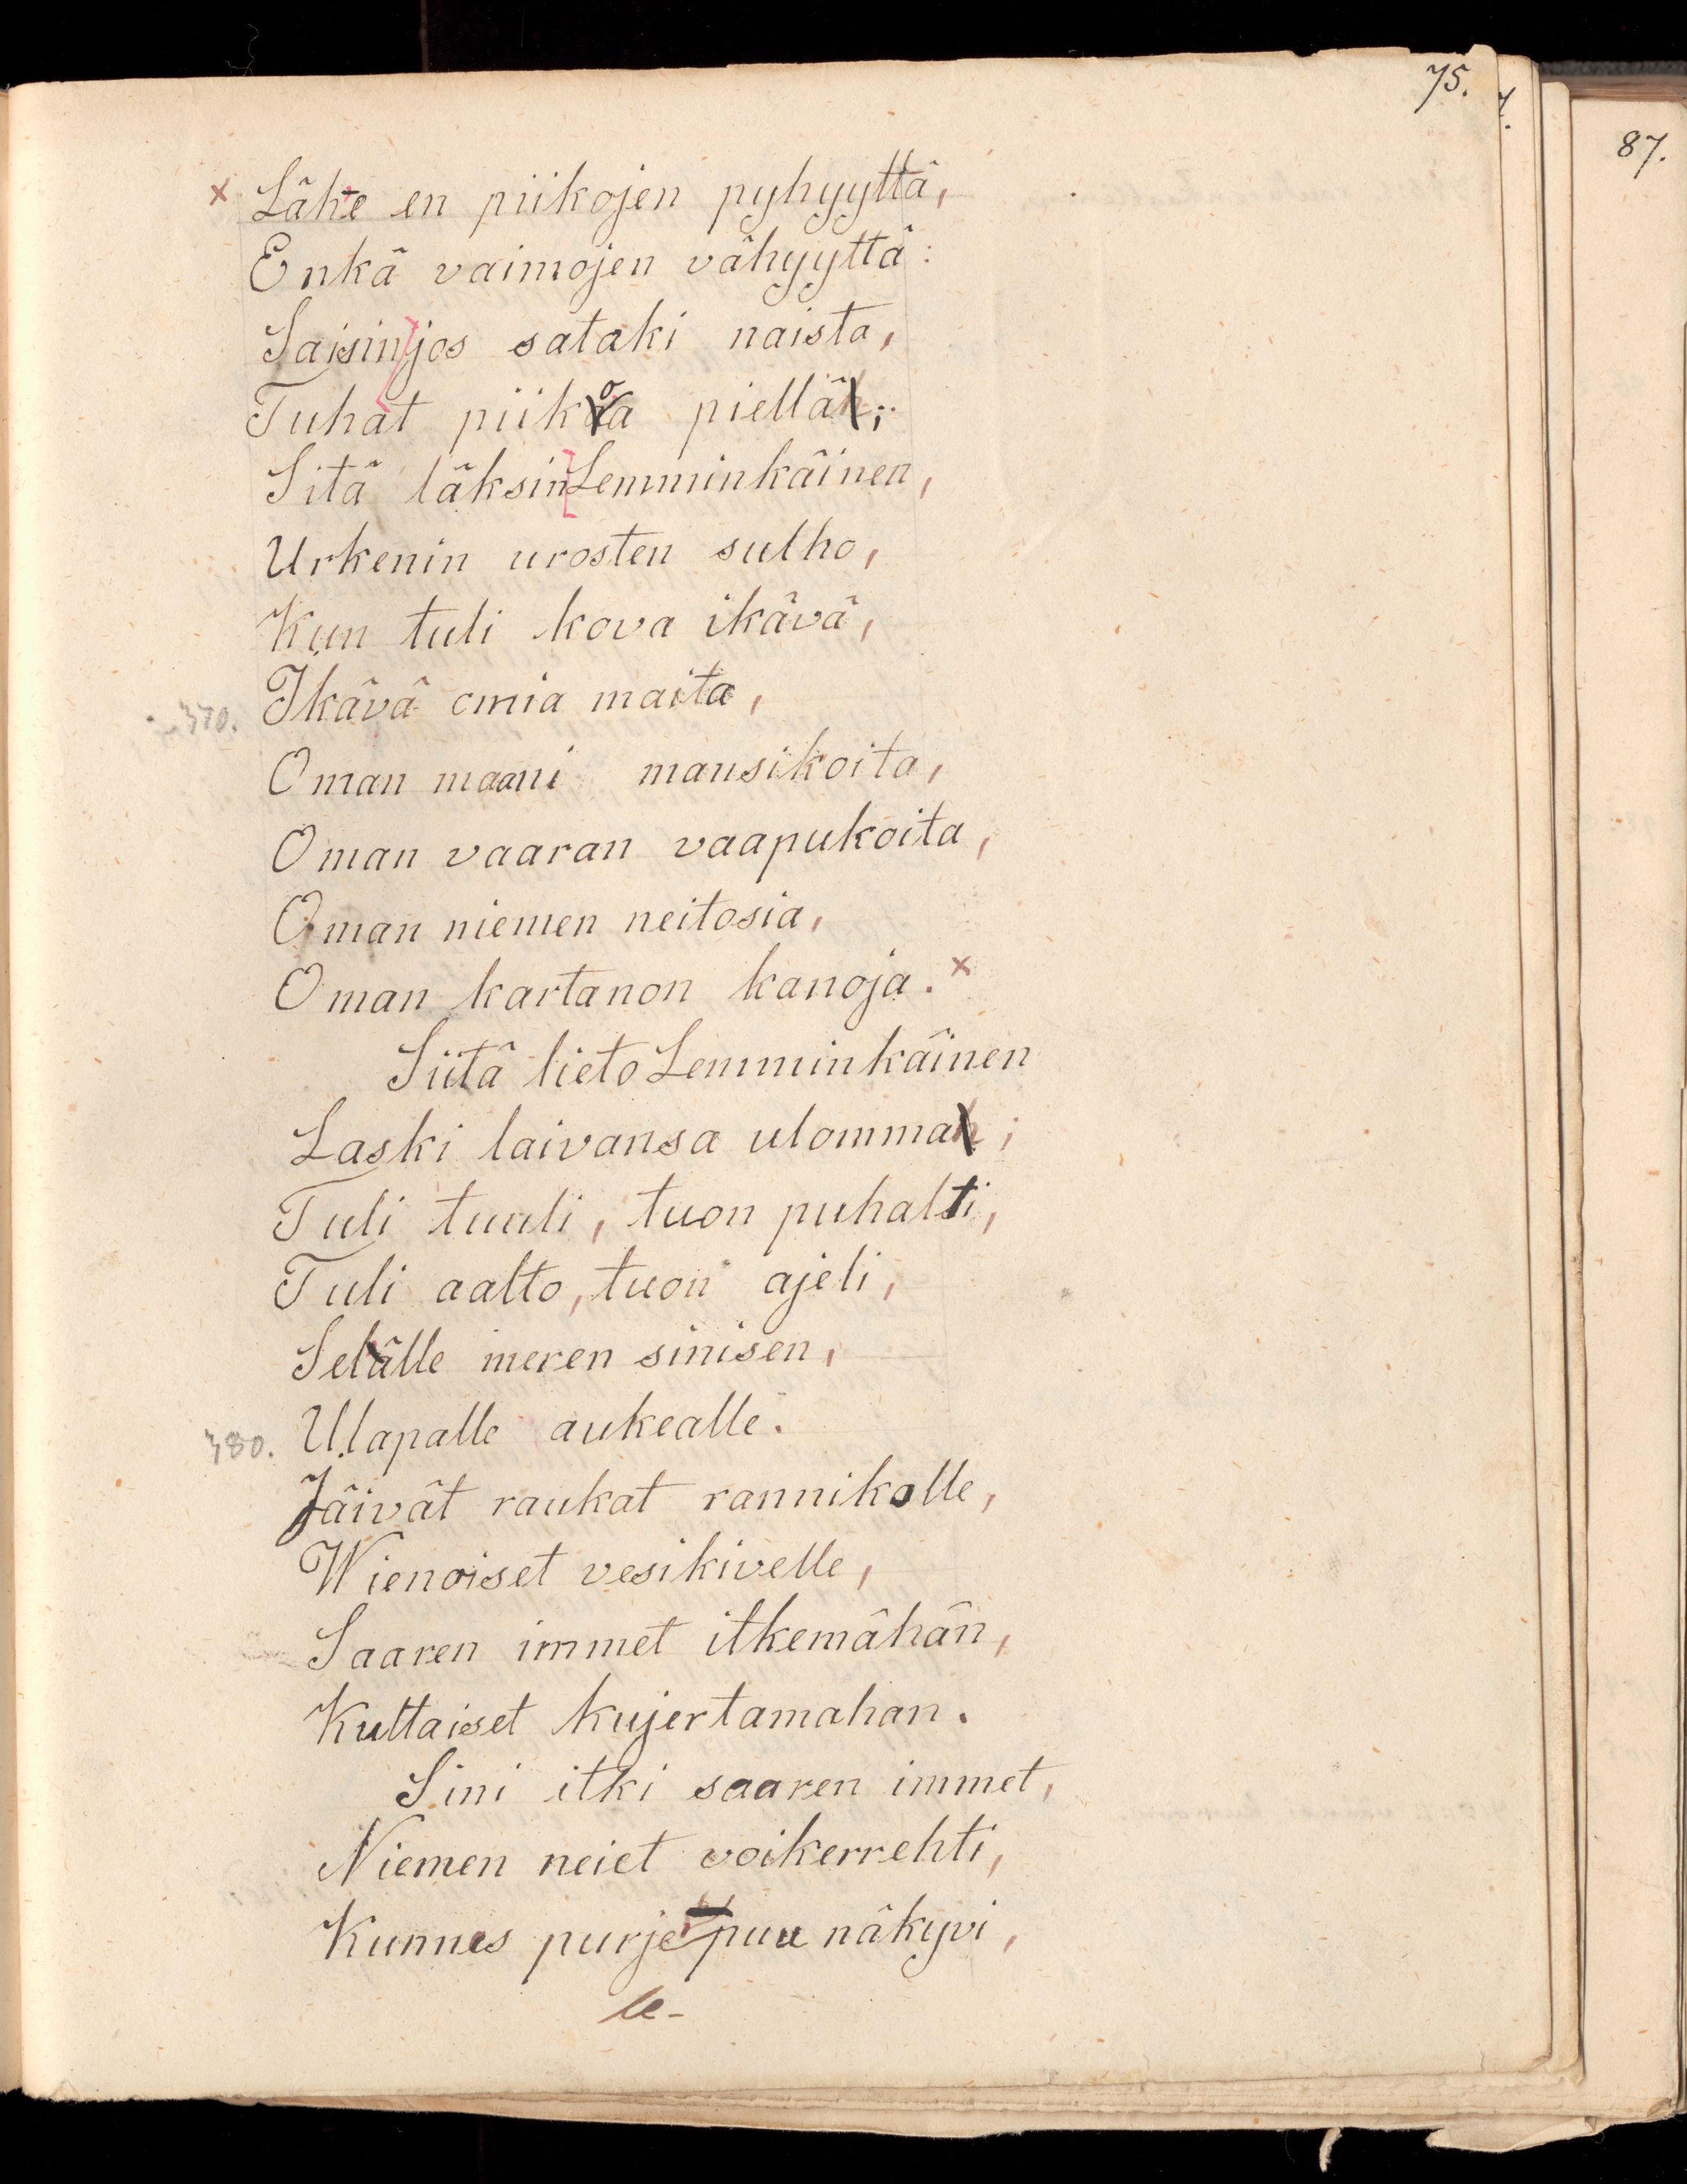 75.
87.
× Lähte en piikojen pyhyyttä,
Enkä vaimojen vähyyttä:
Saisin jos sataki naista,
Tuhat piikoa piellä;
Sitä läksin Lemminkäinen,
Urkenin urosten sulho,
Kun tuli kova ikävä,
370. Ikävä omia maita,
Oman maani mansikoita,
Oman vaaran vaapukoita,
Oman niemen neitosia,
Oman kartanon kanoja. ×
Siitä lieto Lemminkäinen
Laski laivansa ulomma;
Tuli tuuli, tuon puhalti,
Tuli aalto, tuon ajeli,
Selälle meren sinisen,
380. Ulapalle aukealle.
Jäivät raukat rannikolle,
Wienoiset vesikivelle,
Saaren immet itkemähän,
Kultaiset kujertamahan.
Sini itki saaren immet,
Niemen neiet voikerrehti,
Kunnes purjepuu näkyvi,
le-